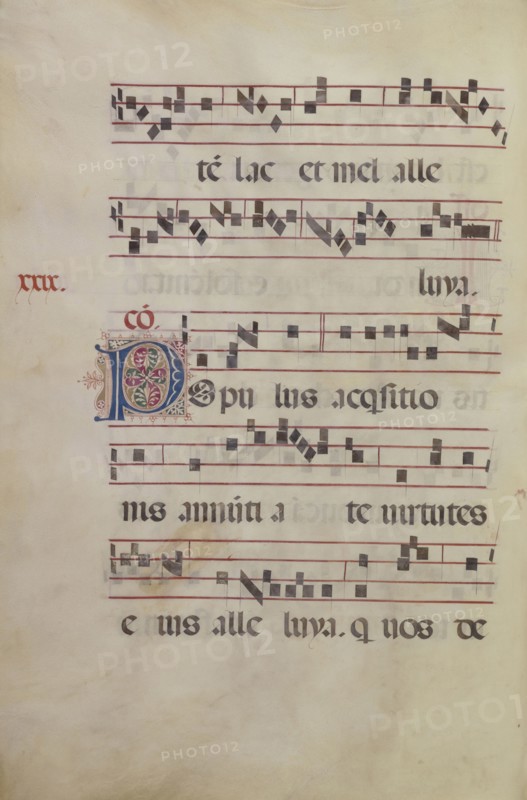 té lac et mel alle
luya.
xxix.
cō.
POpu lus acq̄sitio
nis annūti a te uirtutes
e ius alle luya. q uos de
PHOTO12